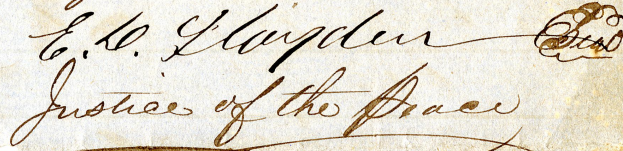 E. D. Hoyden Seal
Justice of the Peace